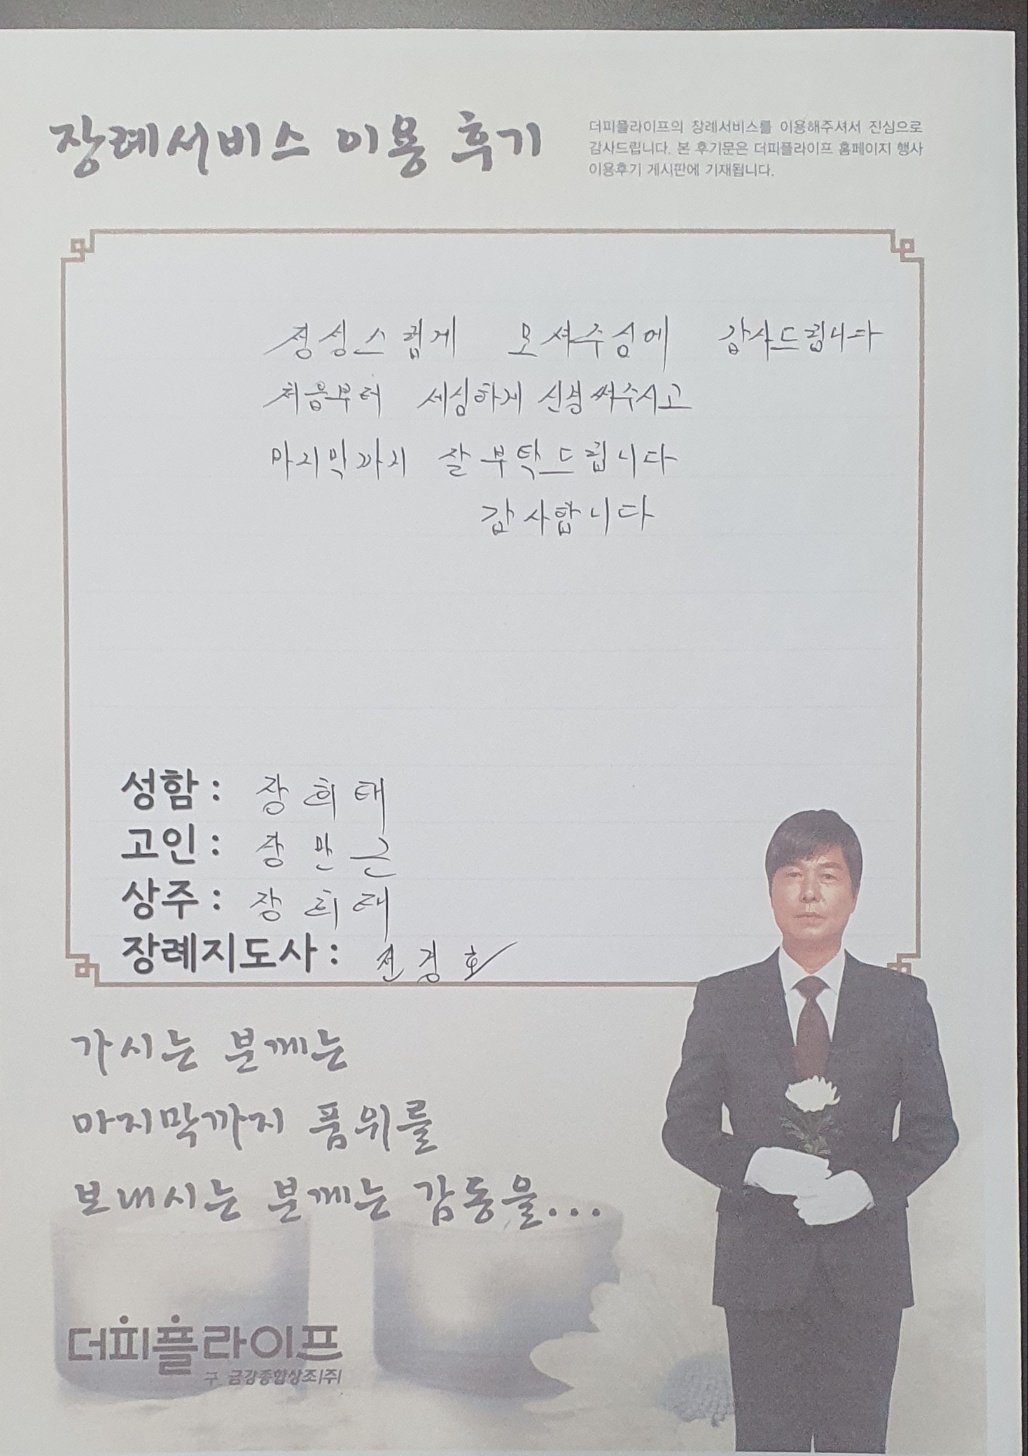 장례서비스 이용 후기
더피플라이프의 장례서비스를 이용해주셔서 진심으로
감사드립니다. 본 후기문은 더피플라이프 홈페이지 행사
이용후기 게시판에 기재됩니다.
정성스럽게 모셔주심에 감사드립니다
처음부터 세심하게 신경써주시고
마지막까지 잘 부탁드립니다
감사합니다
성함 : 장희태
고인 : 장만근
상주 : 장희태
장례지도사 : 전경호
가시는 분께는
마지막까지 품위를
보내시는 분께는 감동을...
더피플라이프
구 금강종합상조(주)